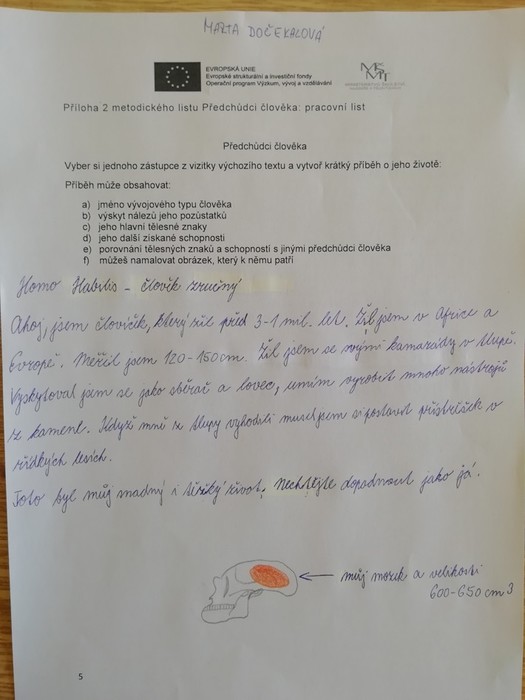 MARTA DOČEKALOVÁ
EVROPSKÁ UNIE
Evropské strukturální a investiční fondy
Operační program Výzkum, vývoj a vzdělávání
Příloha 2 metodického listu Předchůdci člověka: pracovní list
Předchůdci člověka
Vyber si jednoho zástupce z vizitky výchozího textu a vytvoř krátký příběh o jeho životě:
Příběh může obsahovat:
a) jméno vývojového typu člověka
b) výskyt nálezů jeho pozůstatků
c) jeho hlavní tělesné znaky
d) jeho další získané schopnosti
e) porovnání tělesných znaků a schopností s jinými předchůdci člověka
f) můžeš namalovat obrázek, který k němu patří
Homo Habilis - člověk zručný
Ahoj, jsem človíčik, který žil před 3-1 mil. let. Žil jsem v Africe a
Evropě. Měřil jsem 120-150cm. Žil jsem se svými kamarády v tlupě.
Vyskytoval jsem se jako sběrač a lovec, umím vyrobit mnoho nástrojů
z kamene. Když mně z tlupy vyhodili musel jsem si postavit přístřešek v
řídkých lesích.
Toto byl můj snadný i těžký život. Nechtějte dopadnout jako já.
můj mozek a velikosti
600-650 cm3
5